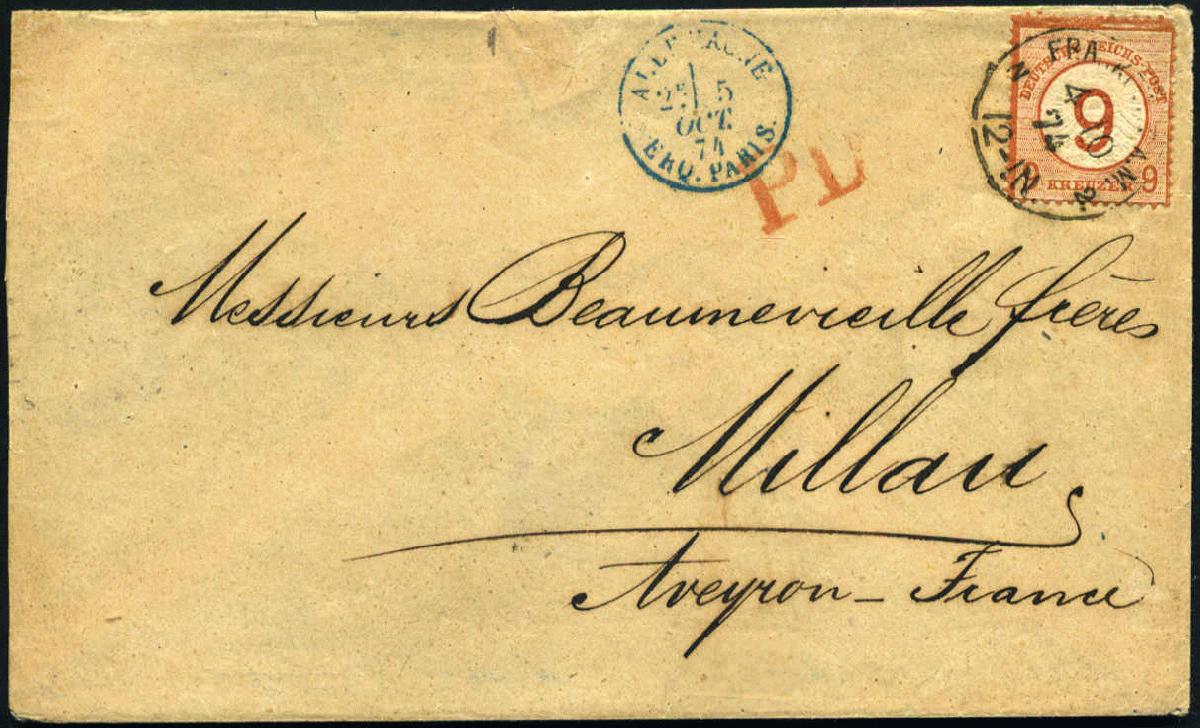 ALLEMAGNE
5
OCT.
74
ERQ. PARIS.
PD
FRANKFURT A.M.
4 10
74
12-1 N.
DEUTSCHE REICHS-POST
9
9 KREUZER 9
Messieurs Beaumevieille frères
Millau
Aveyron - France